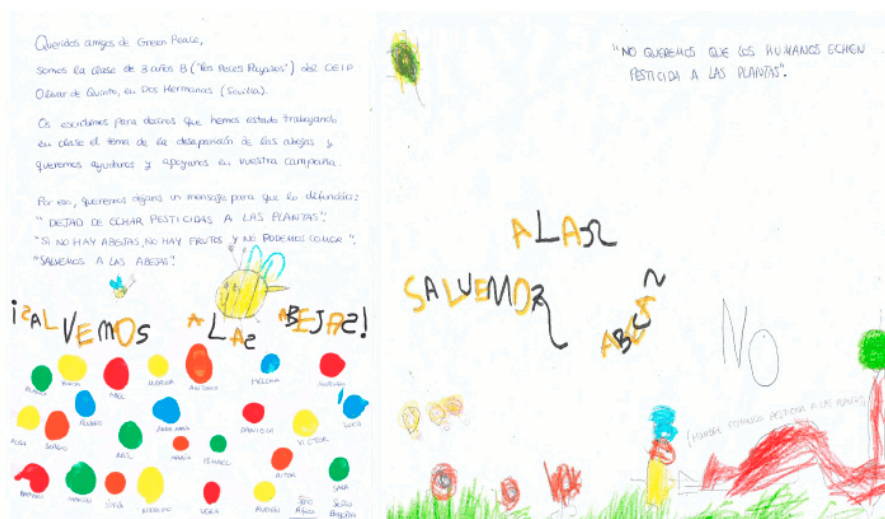 Queridos amigos de Green Peace,
Somos la clase de 3 años B ("Los Peces Payasos") del CEIP
Olivar de Quinto, en Dos Hermanas (Sevilla).
Os escribimos para deciros que hemos estado trabajando
en clase el tema de la desaparición de las abejas y
queremos ayudaros y apoyaros en vuestra campaña.
Por eso, queremos dejaros un mensaje para que lo difundáis:
"DEJAD DE ECHAR PESTICIDAS A LAS PLANTAS".
"SI NO HAY ABEJAS, NO HAY FRUTOS Y NO PODEMOS COMER".
"SALVEMOS A LAS ABEJAS".
¡SALVEMOS A LAS ABEJAS!
MARINA ANTONIO MELCHA
ÁLVARO DANIELA VICTOR LUCA
SERGIO MARÍA ISMAEL
AITOR
MARTÍN SOFÍA VERA SARA
Seño Seño
Begoña
"NO QUEREMOS QUE LOS HUMANOS ECHEN
PESTICIDA A LAS PLANTAS".
A LAS
SALVEMOS
NO
(HOMBRE ECHANDO PESTICIDA A LAS PLANTAS)